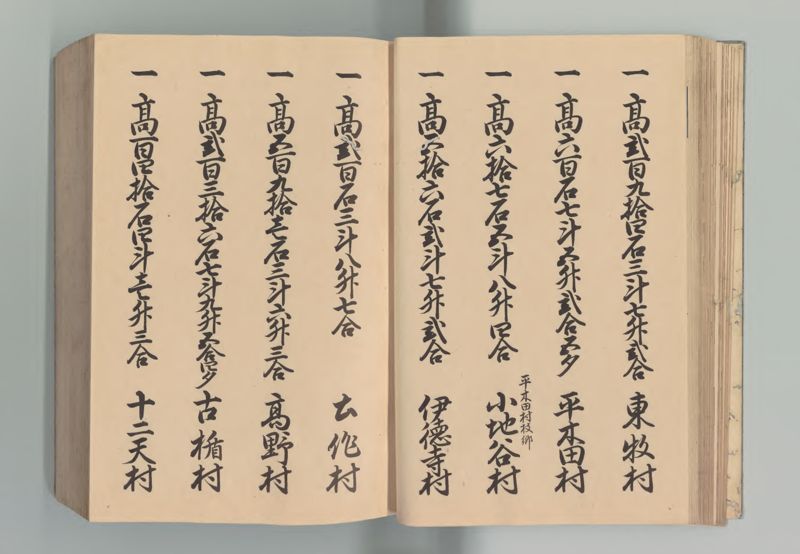 一 高弐百九拾四石三斗七升弐合 東牧村
一 高六百石七斗五升弐合五夕 平木田村
平木田村枝郷
一 高六拾七石五斗八升四合 小地谷村
一 高五拾六石弐斗七升弐合 伊徳寺村
一 高弐百石三斗八升七合 土作村
一 高五百九拾壱石三斗六升三合 高野村
一 高弐百三拾六石七斗九升五合四夕 古楯村
一 高百四拾石四斗壱升三合 十二天村